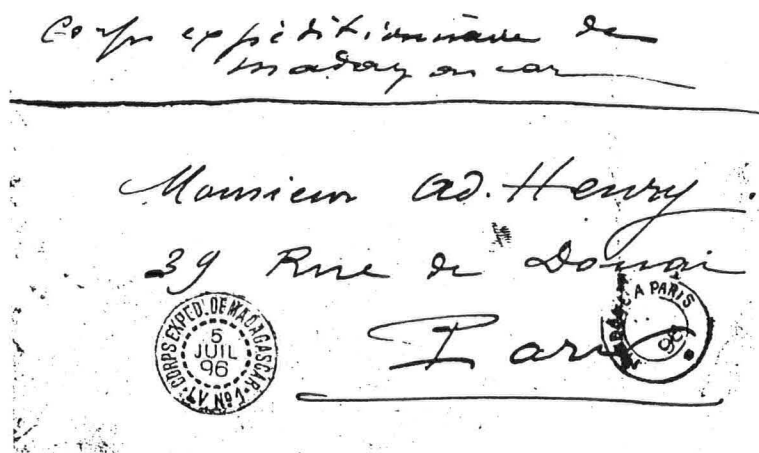 Corps expéditionnaire de
Madagascar
Monsieur Ad. Henry.
39 Rue de Douai
Paris
CORPS EXPED. DE MADAGASCAR
5
JUIL
96
A PARIS